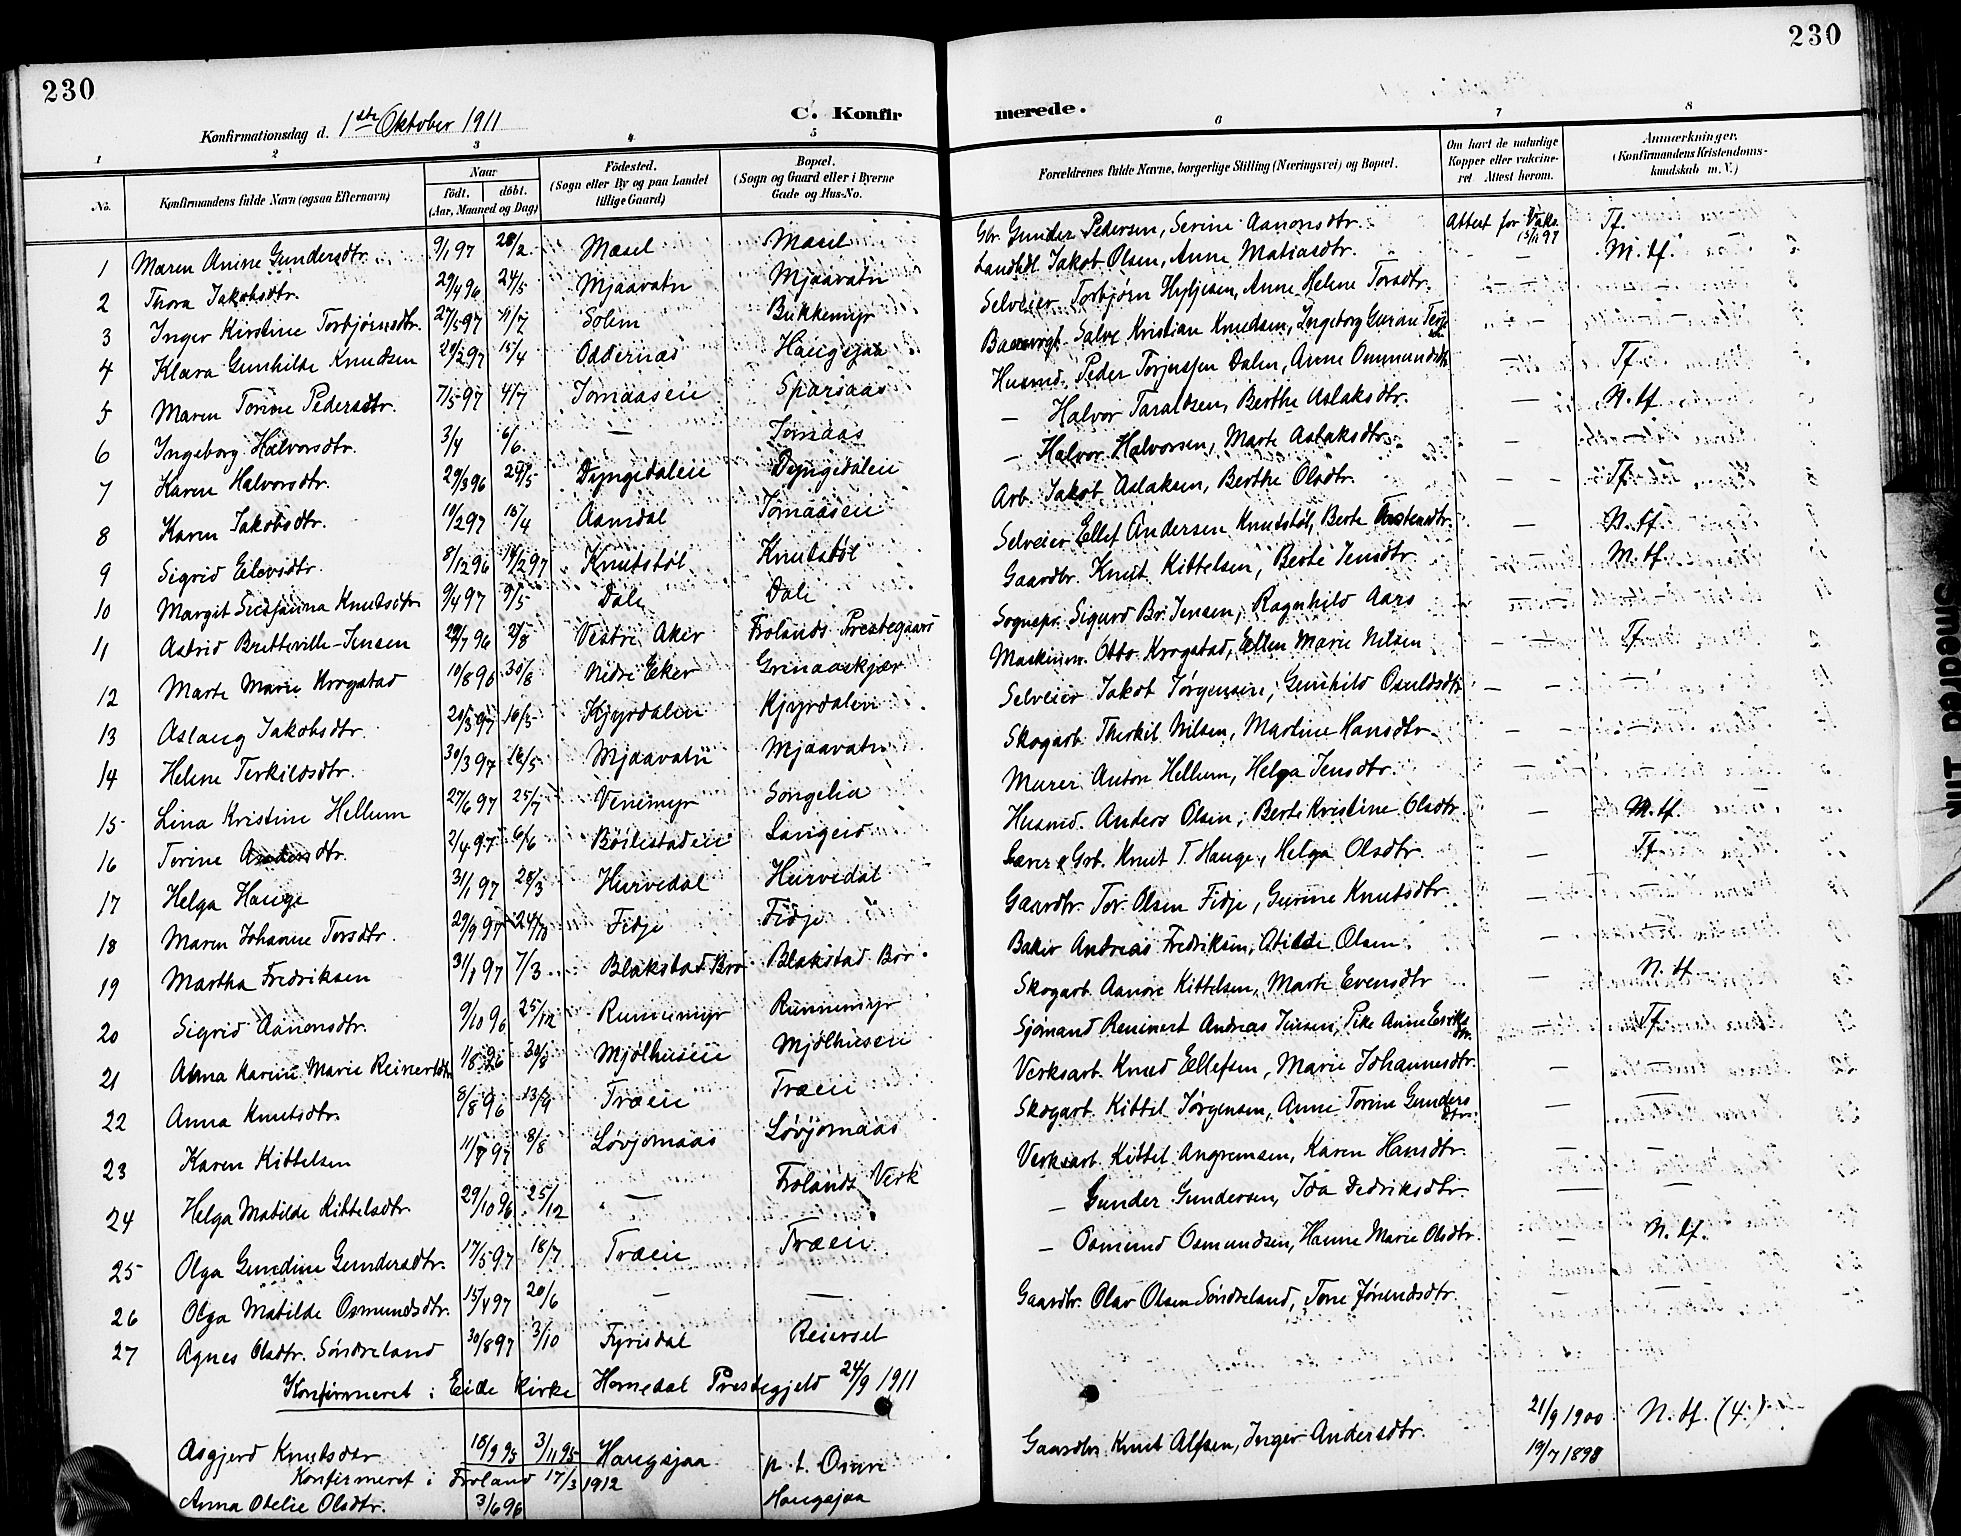 230
230
Konfirmationsdag d. 1ste Oktober 1911
C. Konfirmerede.
1 2 3 4 5 6 7 8
No. Konfirmandens fulde Navn (ogsaa Efternavn) Naar født. døbt. (Aar, Maaned og Dag) Fødested. (Sogn eller By og paa Landet tillige Gaard) Bopæl. (Sogn og Gaard eller i Byerne Gade og Hus-No. Forældrenes fulde Navne, borgerlige Stilling (Næringsvei) og Bopæl. Om havt de naturlige Kopper eller vakcineret Attest herom. Anmærkninger. (Konfirmandens Kristendomskundskab m. V.)
1 Maren Anine Gundersdtr. 9/1 97 28/2 Mæsel Mæsel Gbr. Gunder Pedersen, Serine Aanonsdtr. Attest for Vakc. Tf.
2 Thora Jakobsdtr. 29/4 96 24/5 Mjaavatn Mjaavatn Landhdl. Jakob Olsen, Anne Matiasdtr. — — M. tf.
3 Inger Kirstine Torbjørnsdtr. 27/5 97 11/7 Solim Bukkemyr Selveier Torbjørn Hyljesen, Anne Helene Torsdtr. — —
4 Klara Gunhilde Knudsen 20/2 97 15/4 Oddernes Haugsjaa Salve Kristian Knudsen, Ingeborg Gurine — —
5 Maren Tomine Pedersdtr. 7/5 97 4/7 Jomaasen Sparsaas Husmd. Peder Torjussen Dalen, Anne Ommundsdtr. — Tf.
6 Ingeborg Halvorsdtr. 3/4 6/6 — Jomaas — Halvor Taraldsen, Berthe Aslaksdtr. — N. tf.
7 Karen Halvorsdtr. 29/3 96 29/5 Dyngedalen Dyngedalen — Halvor Halvorsen, Marte Aslaksdtr. —
8 Karen Jakobsdtr. 10/2 97 15/4 Aamdal Jomaasen Arb. Jakob Aslaksen, Berthe Olsdtr. — — Tf.
9 Sigrid Eilevsdtr. 8/12 96 14/2 97 Knutstøl Knutstøl Selveier Ellef Andersen Knutstøl, Berte — N. tf.
10 Margit Susanna Knutsdtr 9/4 97 9/5 Dale Dale Gaardbr. Knut Kittelsen, Berte Jensdtr. — M. tf.
11 Astrid Bretteville-Jensen 29/7 96 2/8 Vestre Aker Frolands Prestegaard Sognepr. Sigurd Br. Jensen, Ragnhild Aars — —
12 Marte Marie Krogstad 10/8 96 30/8 Nedre Eker Grinaaskjær Maskinm. Otto Krogstad, Ellen Marie Nilsen — — Tf.
13 Aslaug Jakobsdtr. 20/3 97 16/5 Kjyrdalen Kjyrdalen Selveier Jakob Jørgensen, Gunhild Osuldsdtr — — —
14 Helene Terkildsdtr. 30/3 97 16/5 Mjaavatn Mjaavatn Skogarb. Therkil Nilsen, Martine Hansdtr. — — —
15 Lina Kristine Hellum 27/6 97 25/7 Venemyr Songelia Murer Anton Hellum, Helga Jensdtr. — —
16 Torine Andersdtr. 2/4 97 6/6 Bøilestaden Langeid Husmd. Anders Olsen, Berte Kristine Olsdtr. — M. tf.
17 Helga Hauge 31/1 97 28/3 Hurvedal Hurvedal Lærer & Grb. Knut T. Hauge, Helga Olsdtr. — Tf
18 Maren Johanne Torsdtr. 29/9 97 24/10 Fidje Fidje Gaardbr. Tor Olsen Fidje, Gurine Knutsdtr. — —
19 Martha Fredriksen 31/1 97 7/3 Blakstad Bro Blakstad Bro Baker Andreas Fredriksen, Otilde Olsen. — —
20 Sigrid Aanonsdtr. 9/10 96 25/12 Runnemyr Runnemyr Skogarb. Aanon Kittelsen, Marte Evensdtr — N. tf
21 Anna Karine Marie Reinertsdtr. 1/8 96 30/8 Mjølhusen Mjølhusen Sjømand Reinert Andreas Jensen, Anne Eriksdtr. — Tf.
22 Anna Knutsdtr. 8/8 96 13/9 Træen Træen Verksarb. Knud Ellefsen, Marie Johannesdtr. — —
23 Karen Kittelsen 11/7 97 8/8 Løvjomaas Løvjomaas Skogarb. Kittel Jørgensen, Anne Torine Gundersdtr. — —
24 Helga Matilde Kittelsdtr 29/10 96 25/12 — Frolands Verk Verksarb. Kittel Angremsen, Karen Hansdtr. — —
25 Olga Gunedine Gundersdtr. 17/5 97 18/7 Træen Træen — Gunder Gundersen, Ida Dedriksdtr. — —
26 Olga Matilde Osmundsdtr. 15/4 97 20/6 — — — Osmund Osmundsen, Hanne Marie Olsdtr. — N. tf.
27 Agnes Olsdtr. Søndreland 30/8 97 3/10 Fyrisdal Reiersel Gaardbr. Olav Olsen Søndreland, Tone Jørundsdtr. — —
Konfirmeret i Eide Kirke Homedal Prestegjeld 24/9 1911
Asgjerd Knutsdtr 18/9 95 3/11 95 Haugsjaa p. t. Osure Gaardbr. Knut Alfsen, Inger Andersdtr. 21/9 1900 N. tf. (4.)
Konfirmeret i Froland 17/3 1912
Anna Otelie Olsdtr. 3/6 96 Haugsjaa 19/7 1898